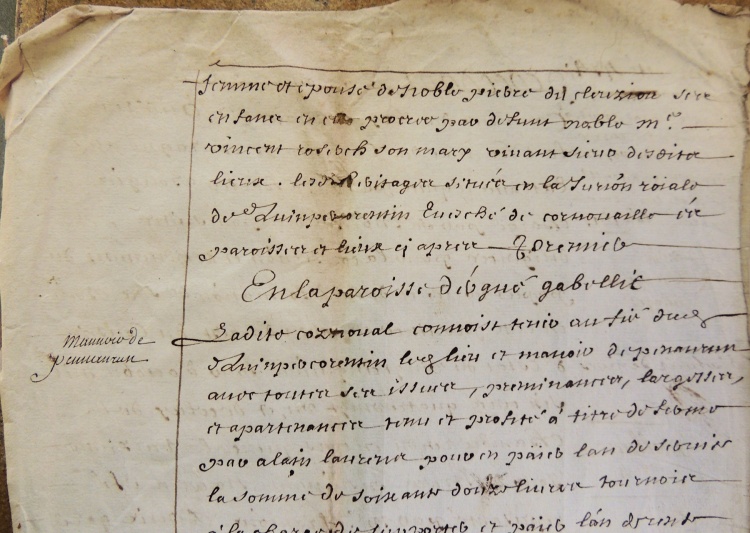 femme et epouse de noble pierre du cleuziou ses
enfans en elle procrees par defunt noble me
vincent rosech son mary vivant sieur desdits
lieux. les heritages situés en la Jurion roiale
de Quinpercorentin Evesché de cornouaille es
paroisses et lieux ci apres Premier
En la paroisse d'ergué gabellic
Manoir de
penneurun
Ladite connoist tenir au fié de
Quinpercorentin le lieu et manoir de penanrun
avec toutes ses issues, preminances, largesses,
et apartenances tenu et profité à titre de ferme
par alain laurens pour en païer l'an de fermes
la somme de soixante douze livres tournois
à la charge de et païer l'an de rente